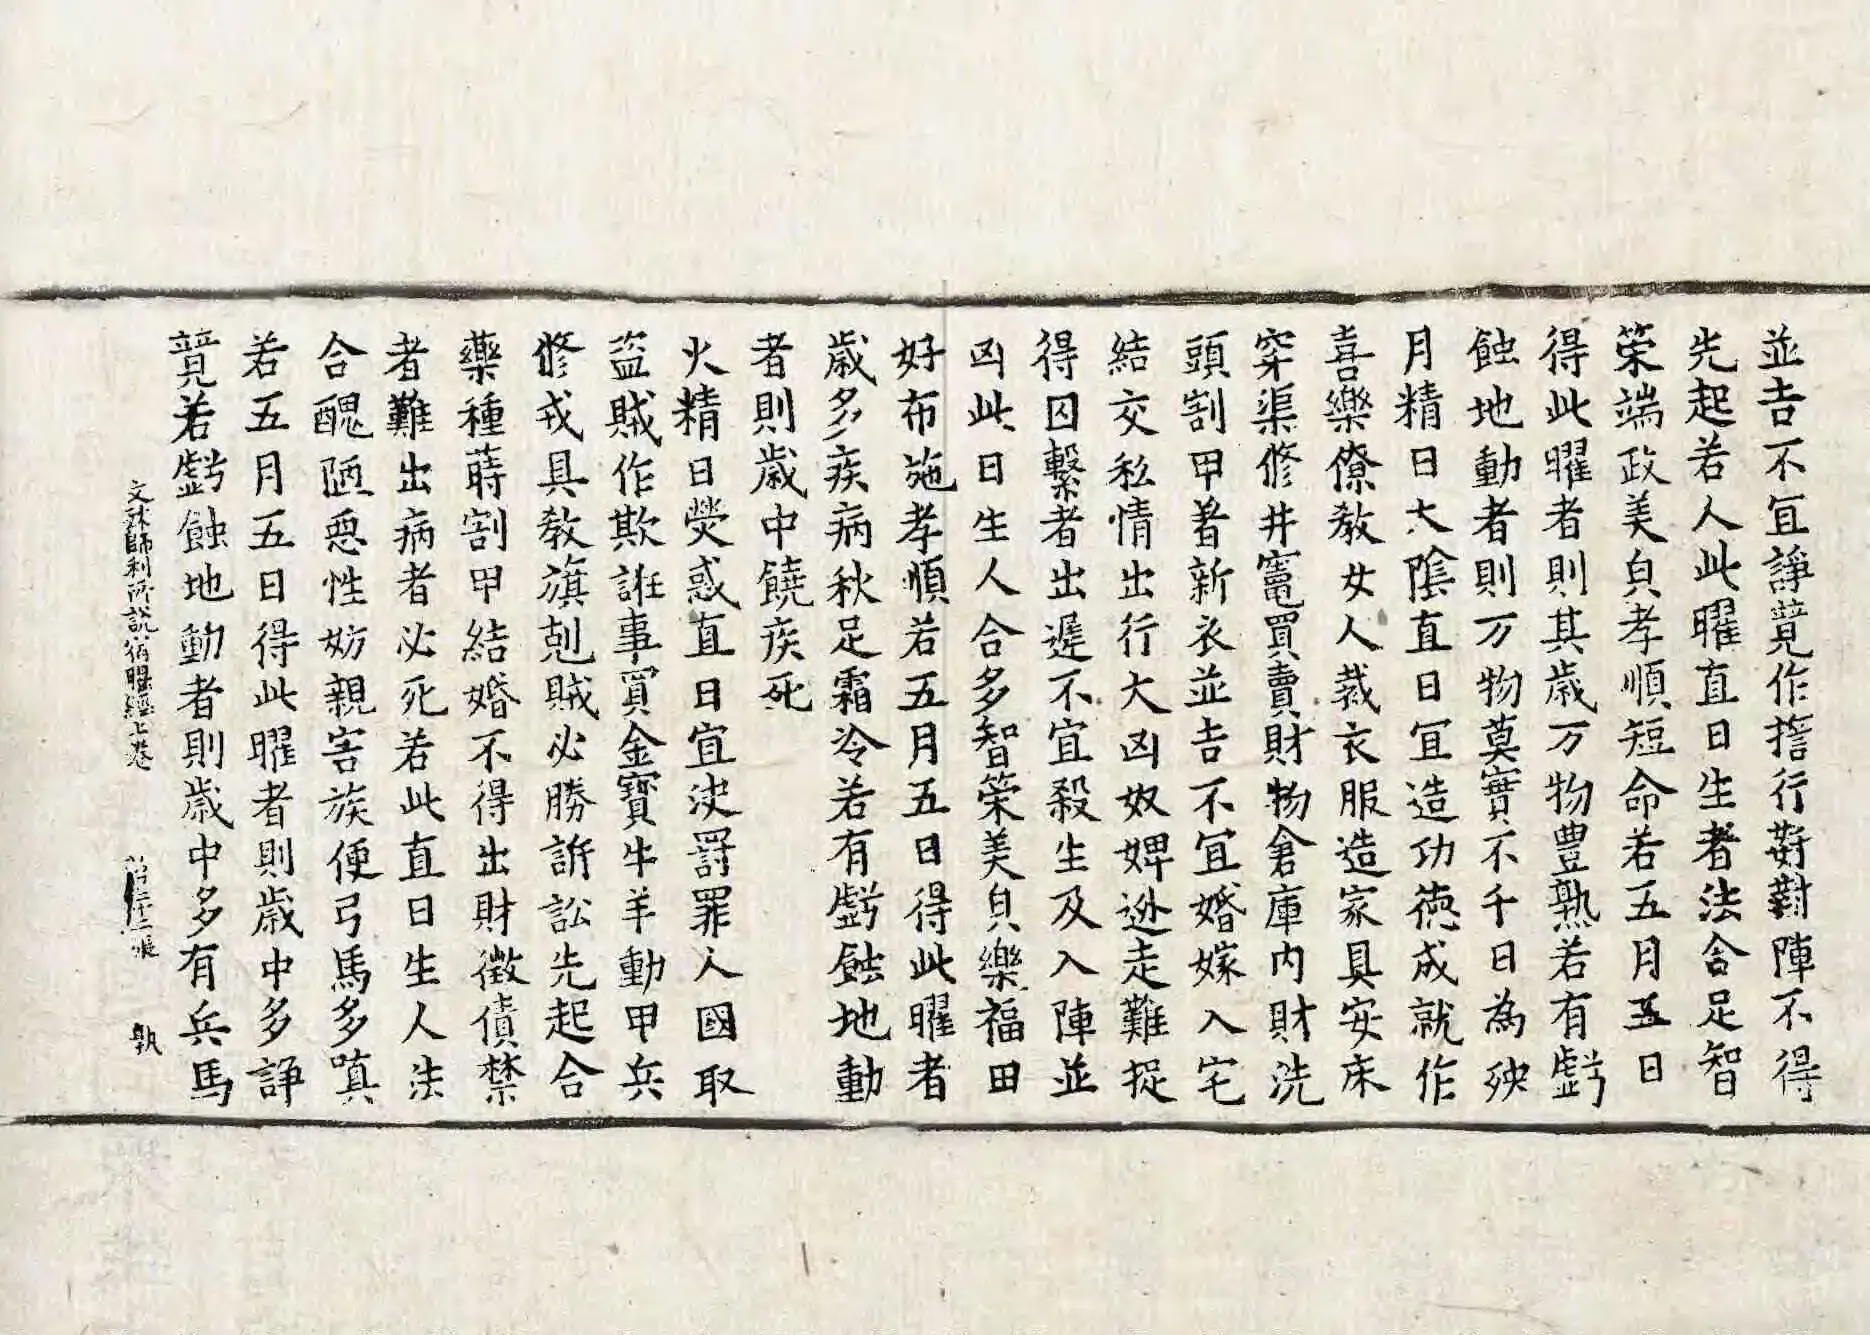 並吉不宜諍竸作擔行對陣不得
先起若人此曜直日生者法合足智
策端政美皃孝順短命若五月五日
得此曜者則其歳万物豊熟若有虧
蝕地動者則万物莫實不千日為殃
月精日大陰直日宜造功德成就作
喜樂僚教女人裁衣服造家具安床
穿渠修井竃買賣財物倉庫内財洗
頭割甲著新衣並吉不宜婚嫁入宅
結交私情出行大凶奴婢逃走難捉
得囚繫者出遲不宜殺生及入陣並
凶此日生人合多智策美皃樂福田
好布施孝順若五月五日得此曜者
歳多疾病秋足霜冷若有虧蝕地動
者則歳中饒疾死
火精日熒惑直日宜決罸罪人國取
盗賊作欺誑事買金寶牛羊動甲兵
修戎具教旗剋賊必勝訴訟先起合
藥種蒔割甲結婚不得出財徵債禁
者難出病者必死若此直日生人法
合醜陋惡性妨親害族便弓馬多嗔
若五月五日得此曜者則歳中多諍
竸若虧蝕地動者則歳中多有兵馬
文殊師利所說宿曜經上卷 張 執